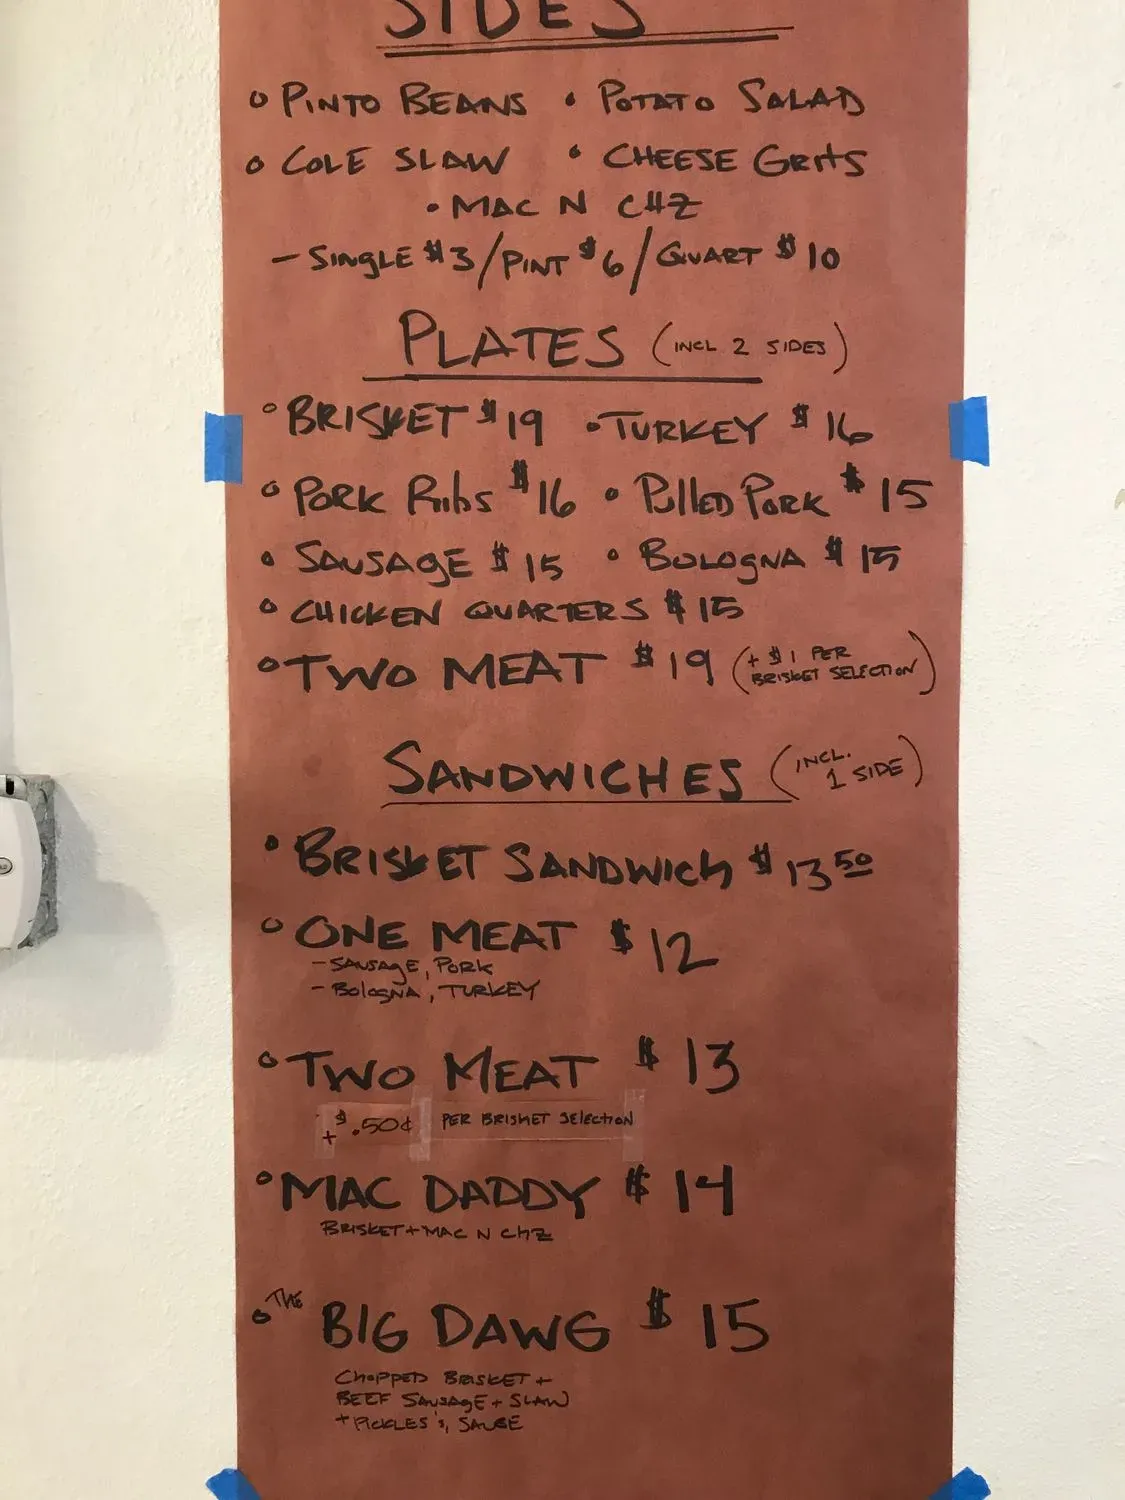 SIDES
• PINTO BEANS • POTATO SALAD
• COLE SLAW • CHEESE GRITS
• MAC N CHZ
- SINGLE $3/PINT $6/QUART $10
PLATES (INCL 2 SIDES)
• BRISKET $19 • TURKEY $16
• PORK RIBS $16 • PULLED PORK $15
• SAUSAGE $15 • BOLOGNA $15
• CHICKEN QUARTERS $15
• TWO MEAT $19 (+ $1 PER BRISKET SELECTION)
SANDWICHES (INCL. 1 SIDE)
• BRISKET SANDWICH $13 50
• ONE MEAT $12
- SAUSAGE, PORK
- BOLOGNA, TURKEY
• TWO MEAT $13
+ $.50¢ PER BRISKET SELECTION
• MAC DADDY $14
BRISKET + MAC N CHZ
• THE BIG DAWG $15
CHOPPED BRISKET +
BEEF SAUSAGE + SLAW
+ PICKLES's, SAUSE